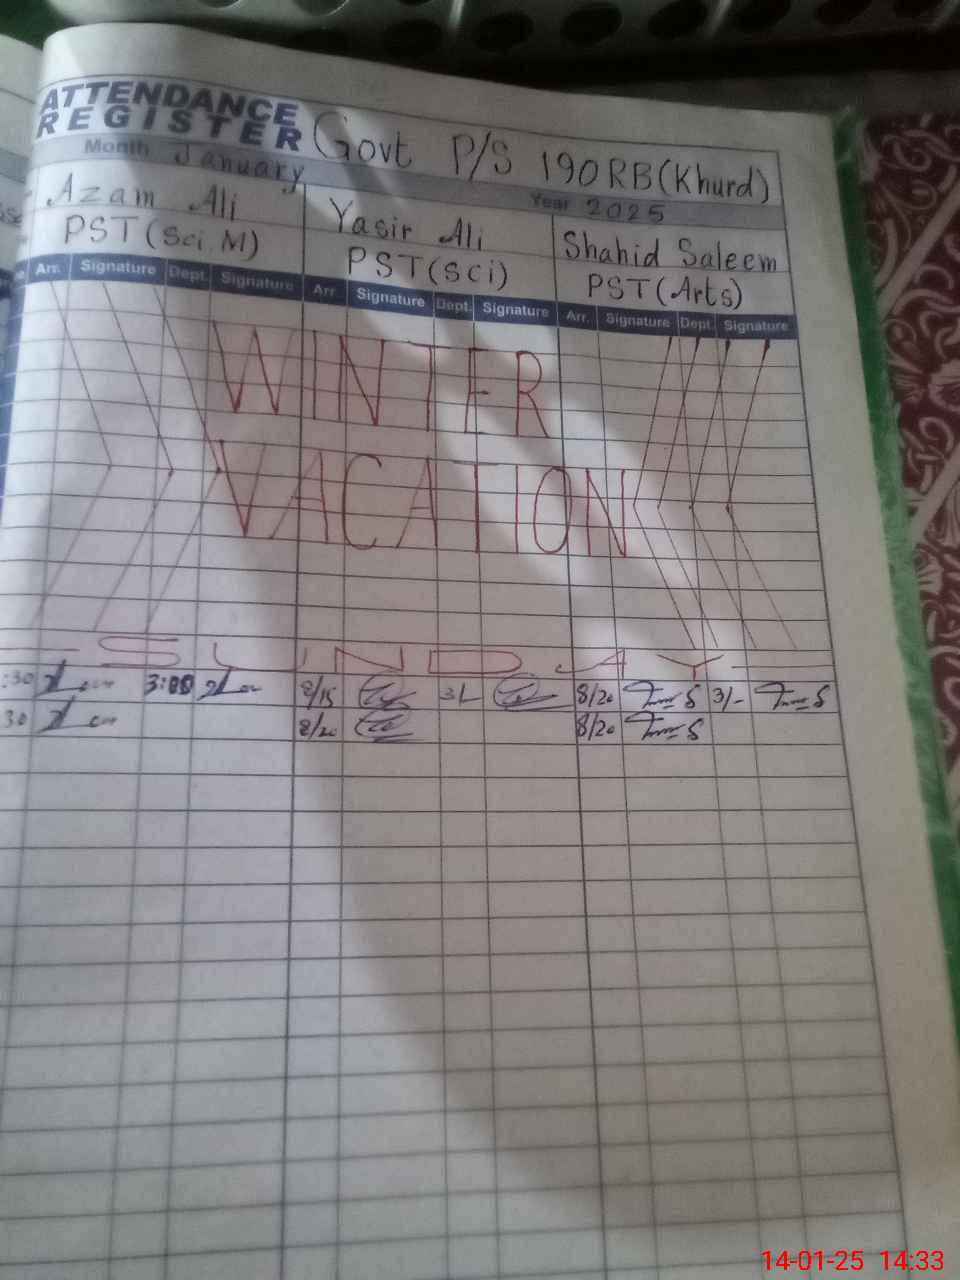 ATTENDANCE
REGISTER
Govt P/S 190RB(Khurd)
Month January
Year 2025
Azam Ali
PST(Sci.M)
Yasir Ali
PST(Sci)
Shahid Saleem
PST(Arts)
Arr. Signature Dept. Signature Arr. Signature Dept. Signature Arr. Signature Dept. Signature
WINTER
VACATION
SUNDAY
:30 3:00 8/15 3/- 8/20 3/-
30 8/20 8/20
14-01-25 14:33